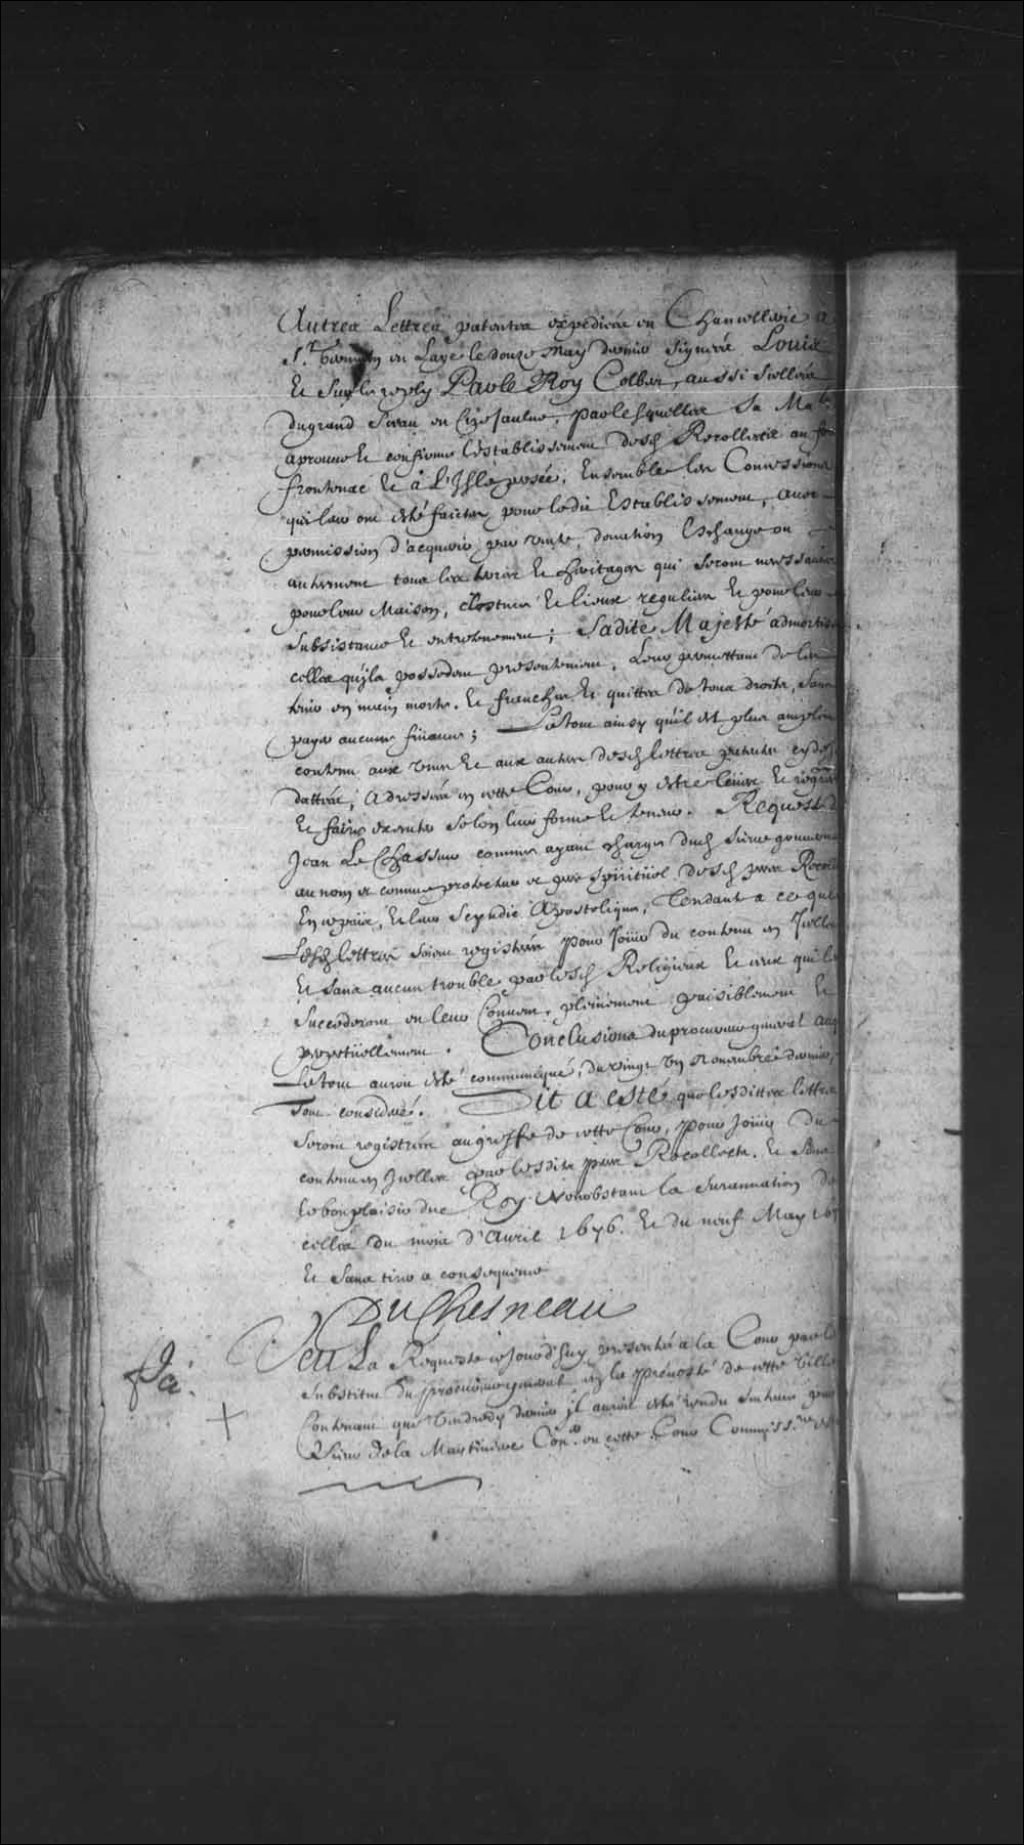 Autres Lettres patentes expediées en Chancellerie a
St. Germain en Laye le douze May dernier signées Louis
Et Sur le reply Par le Roy Colbert, aussi scellées
du grand Sceau en Cire jaulne, par lesquelles Sa Ma.té
aprouve Et confirme l'establissement desd Recollects au fort
frontenac Et à L'Isle percée, Ensemble les Concessions
qui leur ont esté faictes pour ledit Establissement, avec
permission d'acquerir par vente, donation Eschange ou
autrement tous les terres Et heritages qui seront necessaires
pour leur Maison, closture Et lieux reguliers Et pour leur
subsistance Et entretenement; Sadite Majesté admortis
celles qu'ils possedent presentement, Leur permettant de les
tenir en main morte, Et franches Et quittes de tous droits, sans
payer aucune finance; Le tout ainsy qu'il est plus amplem
contenu aux unes Et aux autres desd lettres patentes cy des
dattées, Adressées en cette Cour, pour y estre leües Et regrées
Et faire executer selon leur forme Et teneur. Requeste de
Jean Le Chasseur comme ayant charge dud sieur gouverneur
au nom et comme protecteur et pere spirituel desd peres Recoll
En ce païs, Et leur Scyndic Apostolique, Tendante a ce que
Lesd lettres soient registrées pour Joüir du contenu en Icelles
Et sans aucun trouble par lesd Religieux Et ceux qui le
succederont en leur Convent, pleinement paisiblement Et
perpetüellement. Conclusions du procureur general auq
Le tout auroit esté communiqué, du vingt un Novembre dernier,
Tout consideré. Dit a esté que lesdittes lettres
seront registrées au greffe de cette Cour, pour Joüir du
contenu en Icelles par lesdits peres Recollects, Et sous
le bon plaisir du Roy Nonobstant la surannation de
celles du mois d'Avril 1676. Et du neuf May 167
Et sans tirer a consequence
DuChesneau
Veu La Requeste ce Jourd'huy presentée a la Cour par le
substitut du procureur general en la prévosté de cette Ville
Contenant que Vendredy dernier il auroit esté rendu sentence par
Sieur de la Martiniere Con.er en cette Cour Commiss.re